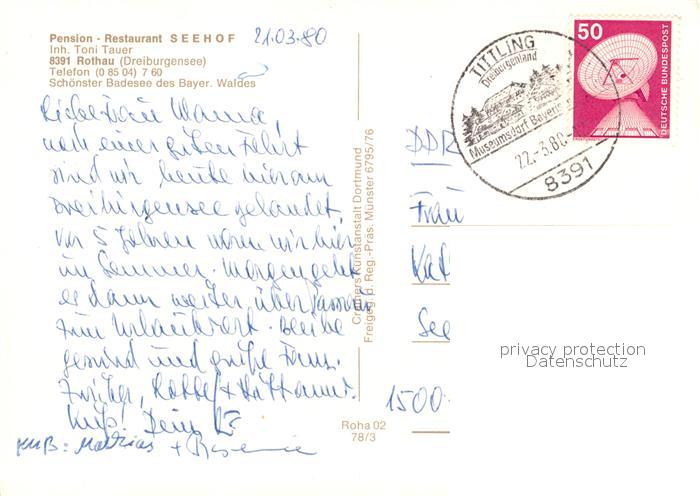 Pension - Restaurant SEEHOF
Inh. Toni Tauer
8391 Rothau (Dreiburgensee)
Telefon (0 85 04) 7 60
Schönster Badesee des Bayer. Waldes
21.03.80
Liebe Frau
nach einer guten Fahrt
sind wir heute hier am
Dreiburgensee gelandet,
vor 5 Jahren waren wir hier
im Sommer. Morgen geht
es dann weiter über Passau
zum Urlaubsort. Bleibe
gesund und grüße
Kuß! Dein
Kuß: Mathias +
Cramers Kunstanstalt Dortmund
Freigeg. d. Reg.-Präs. Münster 6795/76
Roha 02
78/3
TITTLING
Dreiburgenland
Museumsdorf Bayeris
22.-3.80
8391
50
DEUTSCHE BUNDESPOST
DDR
Frau
Kat
See
1500
privacy protection
Datenschutz